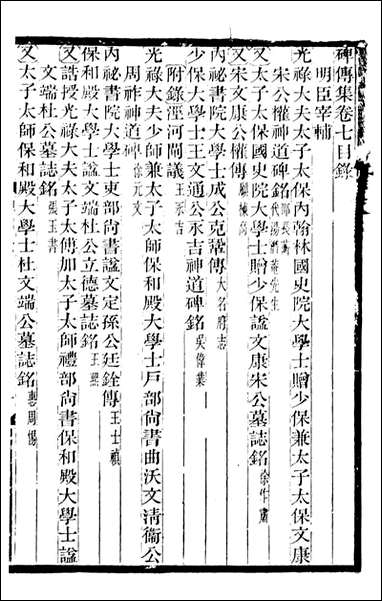 碑傳集卷七目錄
明臣宰輔
光祿大夫太子太保內翰林國史院大學士贈少保兼太子太保文康
宋公權神道碑銘
又太子太保國史院大學士贈少保諡文康宋公墓誌銘
又宋文康公權傳
內祕書院大學士成公克鞏傳大名府志
少保大學士王文通公永吉神道碑銘吳偉業
附錄涇河閘議王永吉
光祿大夫少師兼太子太師保和殿大學士戶部尚書曲沃文清衞公
周祚神道碑徐元文
內祕書院大學士吏部尚書諡文定孫公廷銓傳王士禛
保和殿大學士諡文端杜公立德墓誌銘王熙
又誥授光祿大夫太子太傅加太子太師禮部尚書保和殿大學士諡
文端杜公墓誌銘張玉書
又太子太師保和殿大學士杜文端公墓誌銘惠周惕